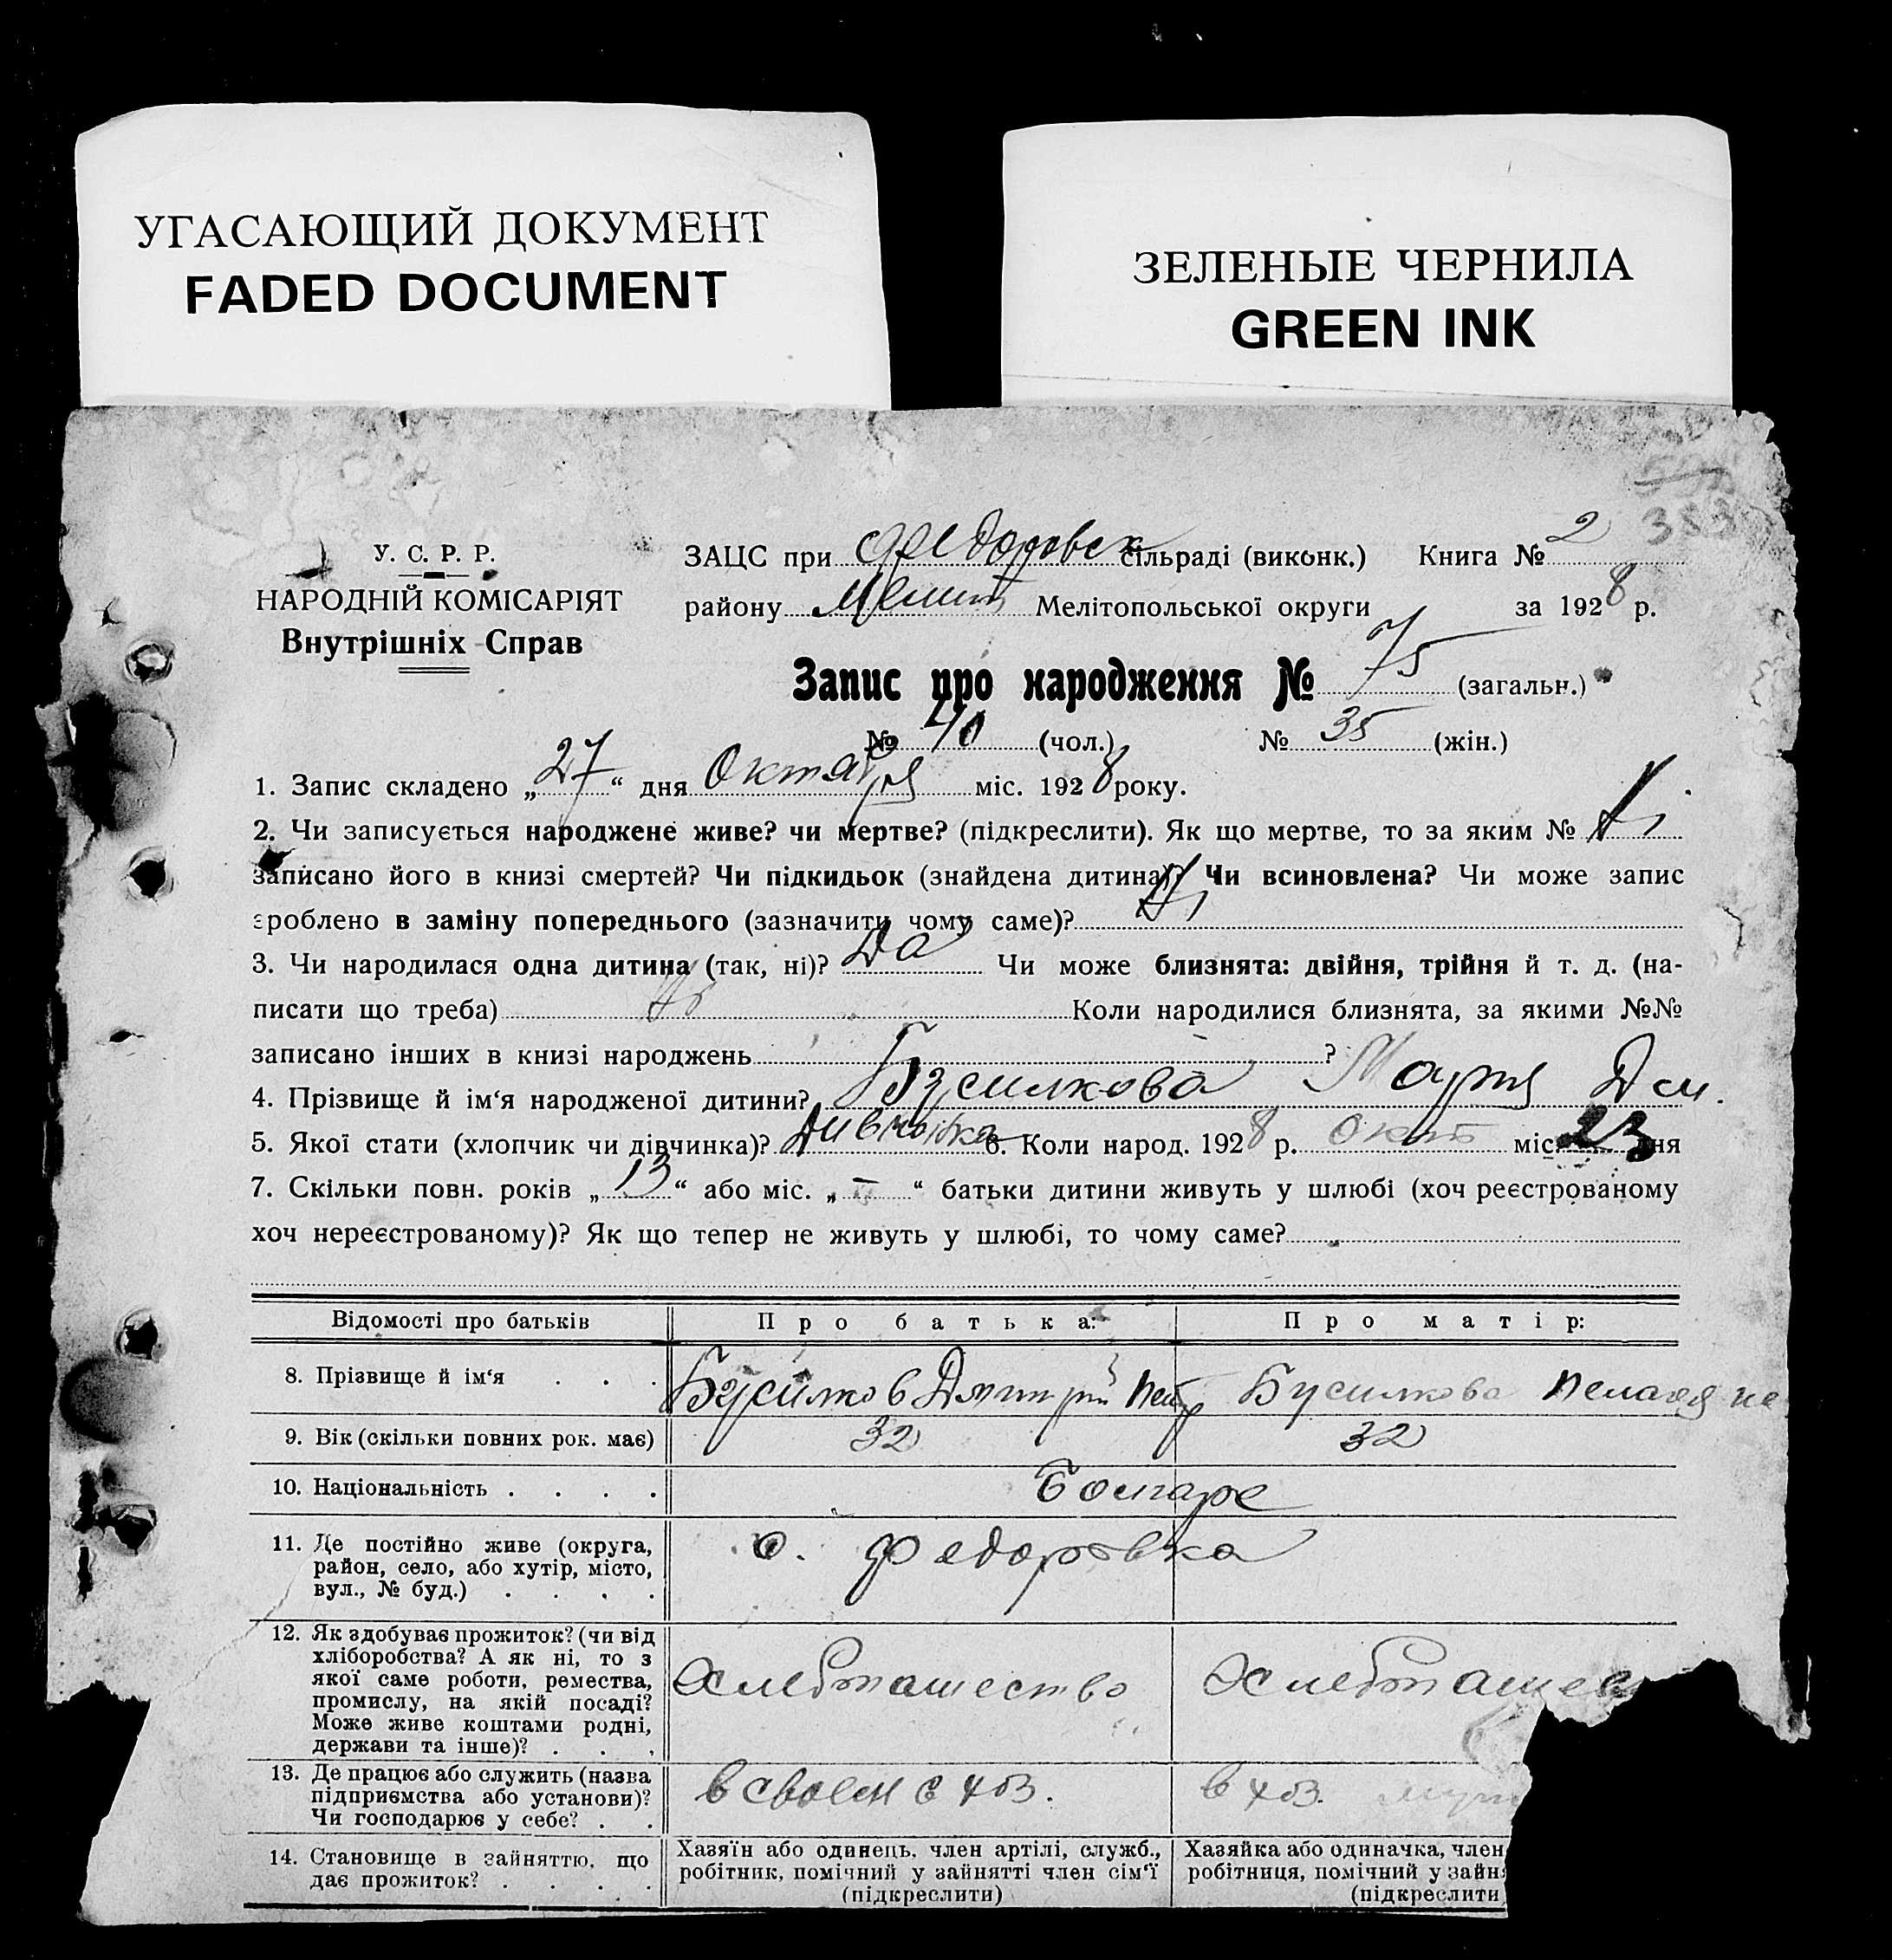 УГАСАЮЩИЙ ДОКУМЕНТ
FADED DOCUMENT
ЗЕЛЕНЫЕ ЧЕРНИЛА
GREEN INK
У. С. Р. Р.
НАРОДНІЙ КОМІСАРІЯТ
Внутрішніх Справ
ЗАЦС при Федоровск сільраді (виконк.) Книга № 2
району Мелит Мелітопольської округи за 1928 р.
Запис про народження № 75 (загальн.)
№ 40 (чол.) № 35 (жін.)
1. Запис складено „27“ дня Октября міс. 1928 року.
2. Чи записується народжене живе? чи мертве? (підкреслити). Як що мертве, то за яким №
записано його в книзі смертей? Чи підкидьок (знайдена дитина)? Чи всиновлена? Чи може запис
зроблено в заміну попереднього (зазначити чому саме)?
3. Чи народилася одна дитина (так, ні)? Да Чи може близнята: двійня, трійня й т. д. (на-
писати що треба) Коли народилися близнята, за якими №№
записано інших в книзі народжень ?
4. Прізвище й ім‘я народженої дитини? Бусилкова Мария Дм.
5. Якої стати (хлопчик чи дівчинка)? Дивчинка 6. Коли народ. 1928 р. Окт міс. 23 дня
7. Скільки повн. років „13“ або міс. „–“ батьки дитини живуть у шлюбі (хоч реєстрованому
хоч нереєстрованому)? Як що тепер не живуть у шлюбі, то чому саме?
Відомості про батьків Про батька: Про матір:
8. Прізвище й ім‘я . . . Бусилков Дмитрий Петр Бусилкова Пелагея
9. Вік (скільки повних рок. має) 32 32
10. Національність . . . . Болгаре
11. Де постійно живе (округа,
район, село, або хутір, місто,
вул., № буд.) . . . .
с. Федоровка
12. Як здобуває прожиток? (чи від
хліборобства? А як ні, то з
якої саме роботи, ремества,
промислу, на якій посаді?
Може живе коштами родні,
держави та інше)? . . .
Хлебопашество Хлебопашес
13. Де працює або служить (назва
підприємства або установи)?
Чи господарює у себе? . .
в своем с хоз. в хоз.
14. Становище в зайняттю, що
дає прожиток? . . . .
Хазяїн або одинець, член артілі, служб.,
робітник, помічний у зайнятті член сім‘ї
(підкреслити)
Хазяйка або одиначка, член
робітниця, помічний у зайн
(підкреслити